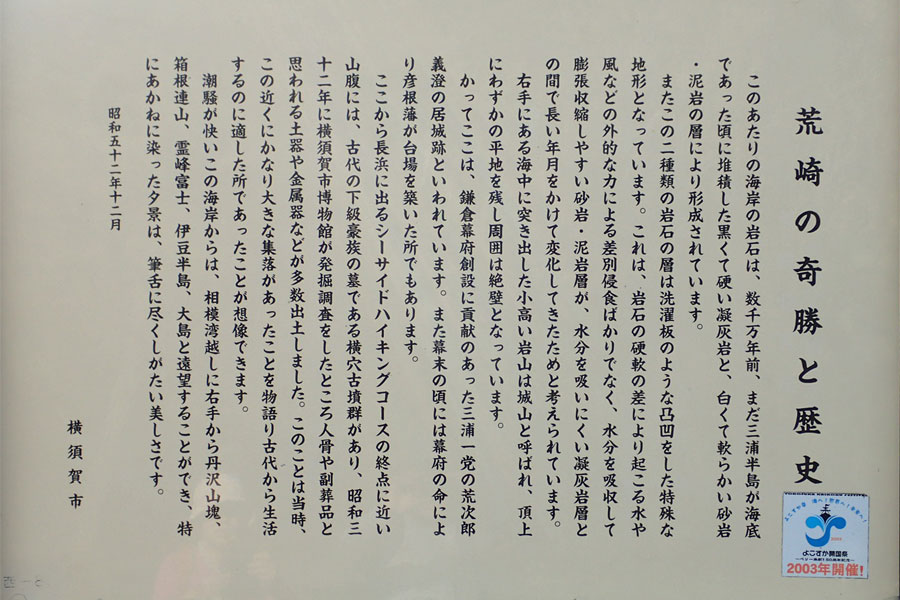 荒崎の奇勝と歴史
このあたりの海岸の岩石は、数千万年前、まだ三浦半島が海底
であった頃に堆積した黒くて硬い凝灰岩と、白くて軟らかい砂岩
・泥岩の層により形成されています。
またこの二種類の岩石の層は洗濯板のような凸凹をした特殊な
地形となっています。これは、岩石の硬軟の差により起こる水や
風などの外的な力による差別侵食ばかりでなく、水分を吸収して
膨張収縮しやすい砂岩・泥岩層が、水分を吸いにくい凝灰岩層と
の間で長い年月をかけて変化してきたためと考えられています。
右手にある海中に突き出した小高い岩山は城山と呼ばれ、頂上
にわずかの平地を残し周囲は絶壁となっています。
かってここは、鎌倉幕府創設に貢献のあった三浦一党の荒次郎
義澄の居城跡といわれています。また幕末の頃には幕府の命によ
り彦根藩が台場を築いた所でもあります。
ここから長浜に出るシーサイドハイキングコースの終点に近い
山腹には、古代の下級豪族の墓である横穴古墳群があり、昭和三
十二年に横須賀市博物館が発掘調査をしたところ人骨や副葬品と
思われる土器や金属器などが多数出土しました。このことは当時、
この近くにかなり大きな集落があったことを物語り古代から生活
するのに適した所であったことが想像できます。
潮騒が快いこの海岸からは、相模湾越しに右手から丹沢山塊、
箱根連山、霊峰富士、伊豆半島、大島と遠望することができ、特
にあかねに染った夕景は、筆舌に尽くしがたい美しさです。
昭和五十二年十二月
横須賀市
よこすか開国祭
2003年開催!